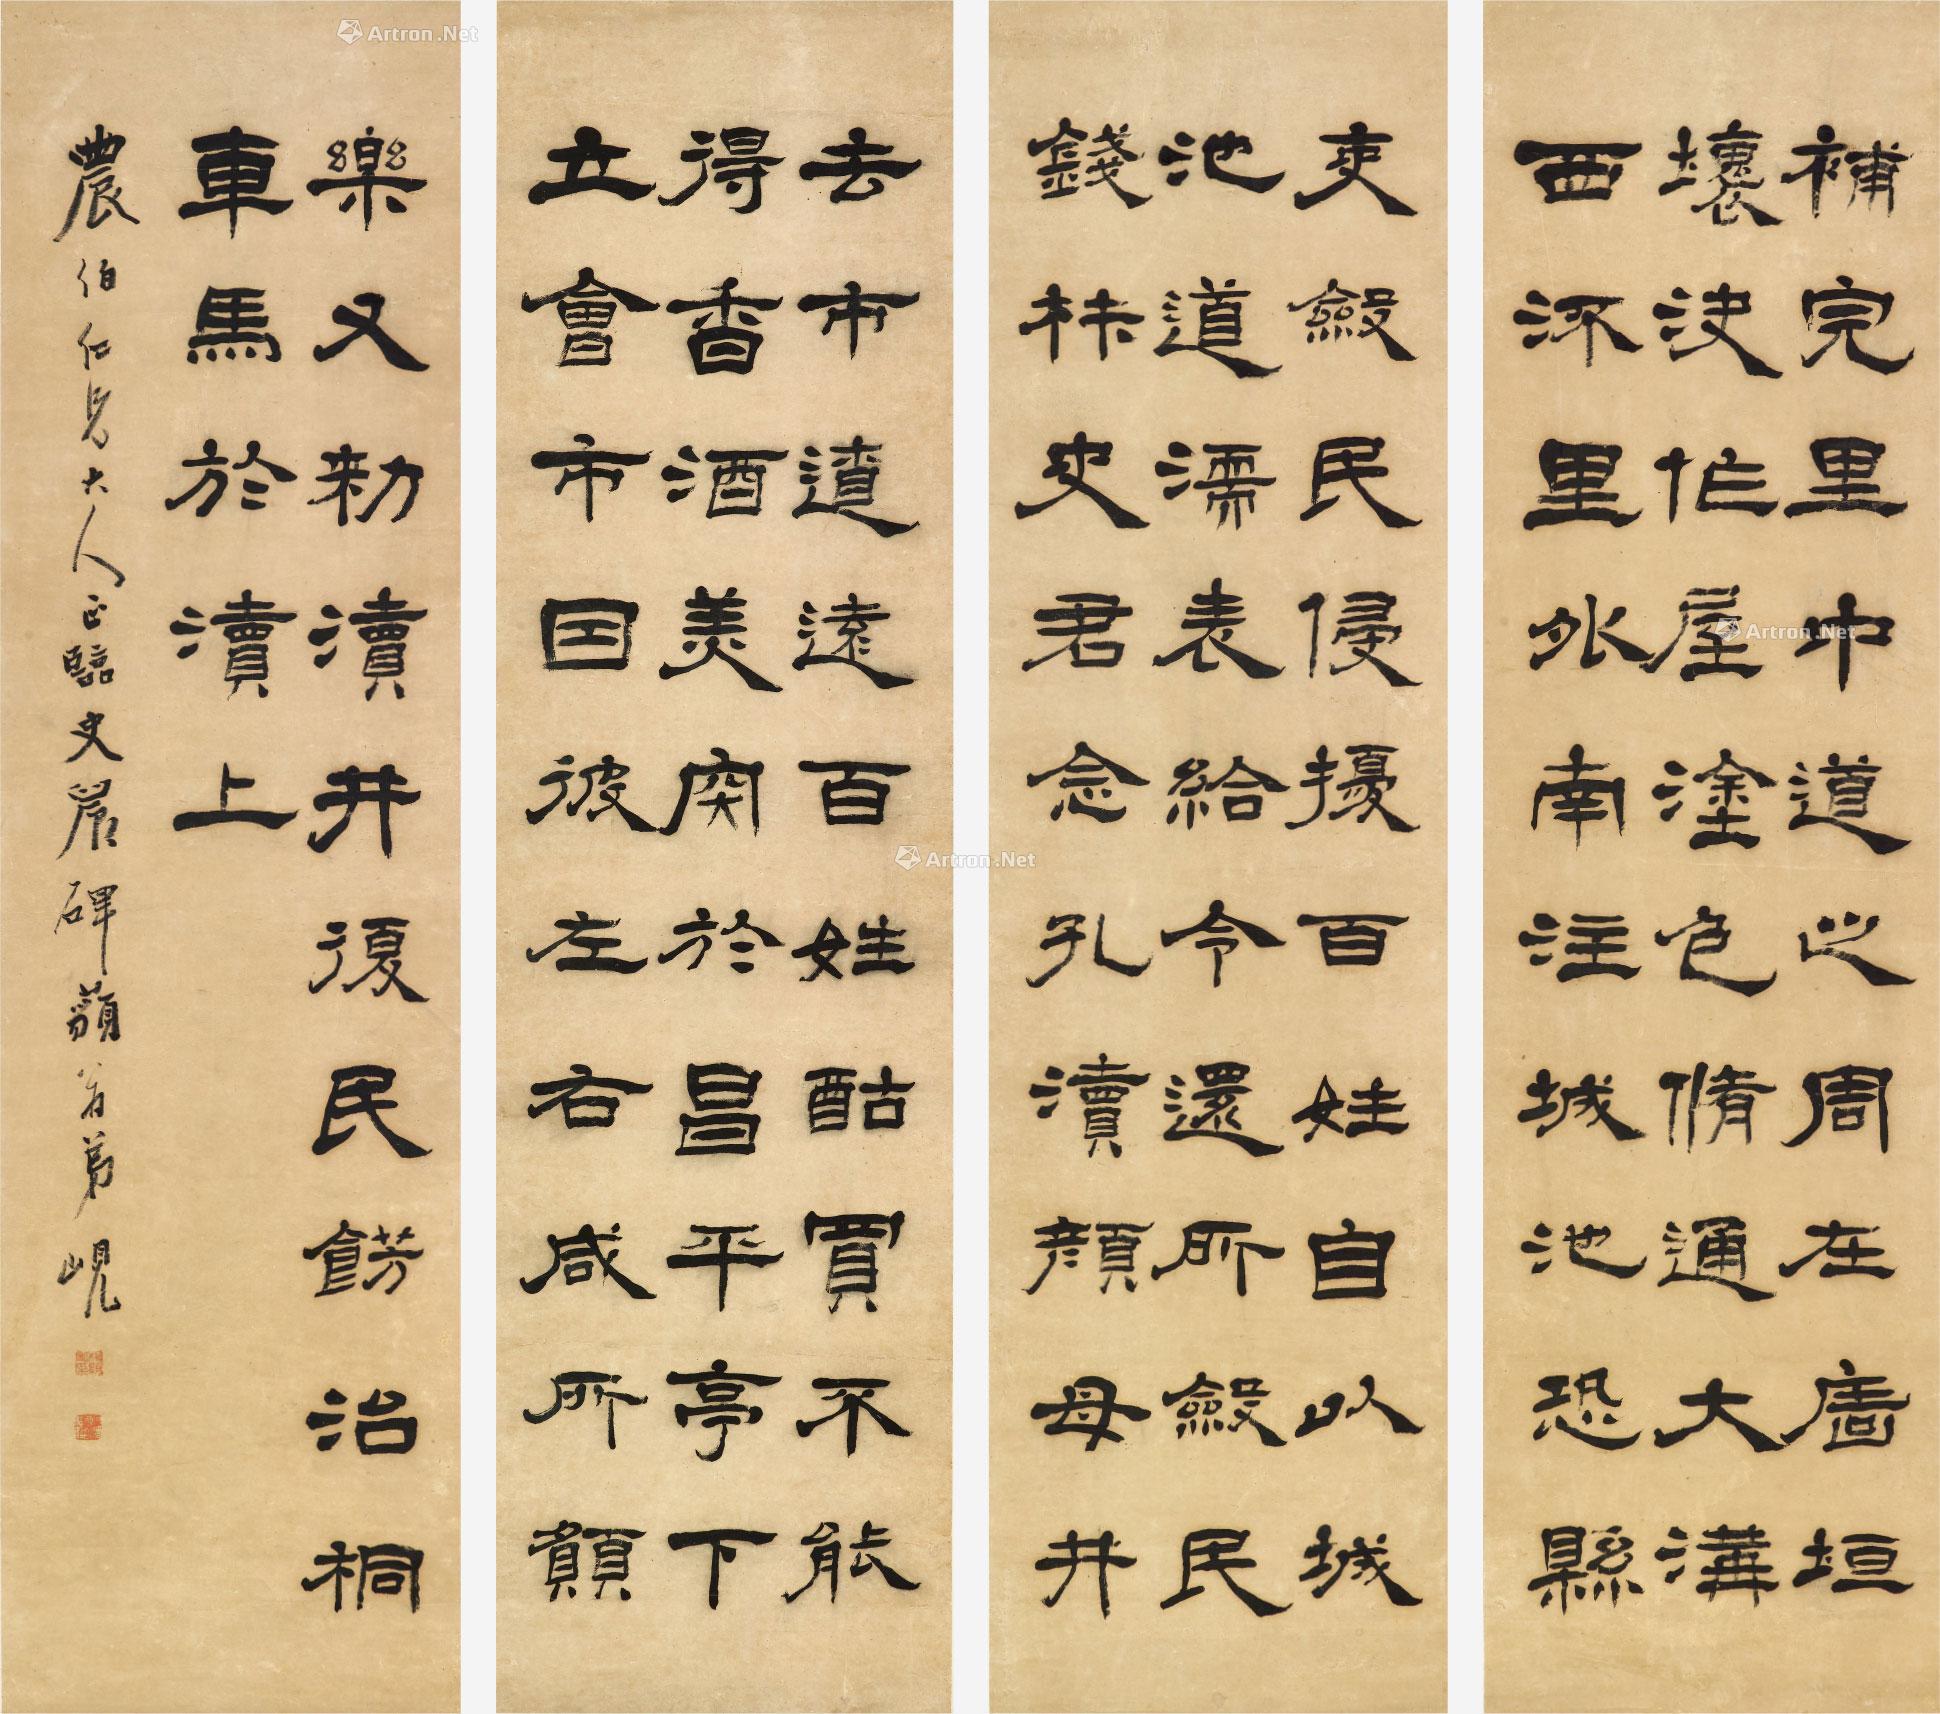 補完里中道之周左廧垣
壞決作屋塗色脩通大溝
西流里外南注城池恐縣
吏斂民侵擾百姓自以城
池道濡表給令還所斂民
錢林史君念孔瀆顏母井
去市遼遠百姓酤買不能
得香酒美肉於昌平亭下
立會市因彼左右咸所願
樂又勑瀆井復民餝治桐
車馬於瀆上
農伯仁兄大人正臨史晨碑藐翁弟峴
Artron.Net
Artron.Net
Artron.Net